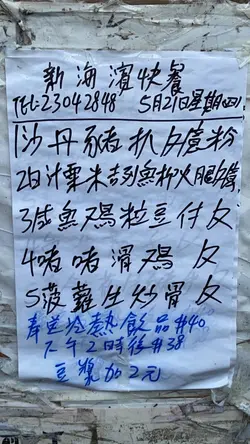 新海濱快餐
TEL:23042848 5月21日星期四
1沙丹豬扒反意粉
2白汁粟米吉列魚柳火腿反意
3咸魚鷄粒豆付反
4啫啫滑鷄 反
5菠蘿生炒骨反
奉送冷熱飲品$40
下午2時後$38
豆漿加2元